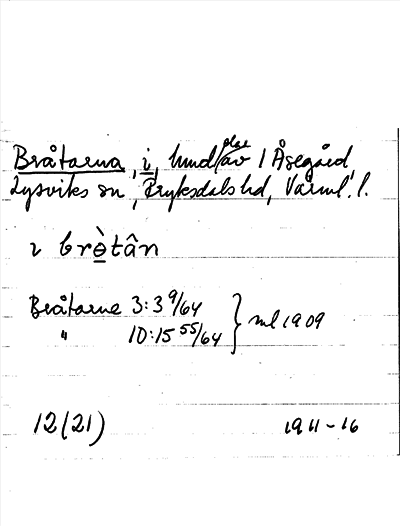 Bråtarna, i, hmd/del av 1 Åsegård,
Lysviks sn, Fryksdals hd, Värml. l.
i brò̱tân
Bråtarne 3:3 9/64
" 10:15 55/64 } ml 1909
12(21) 1911-16